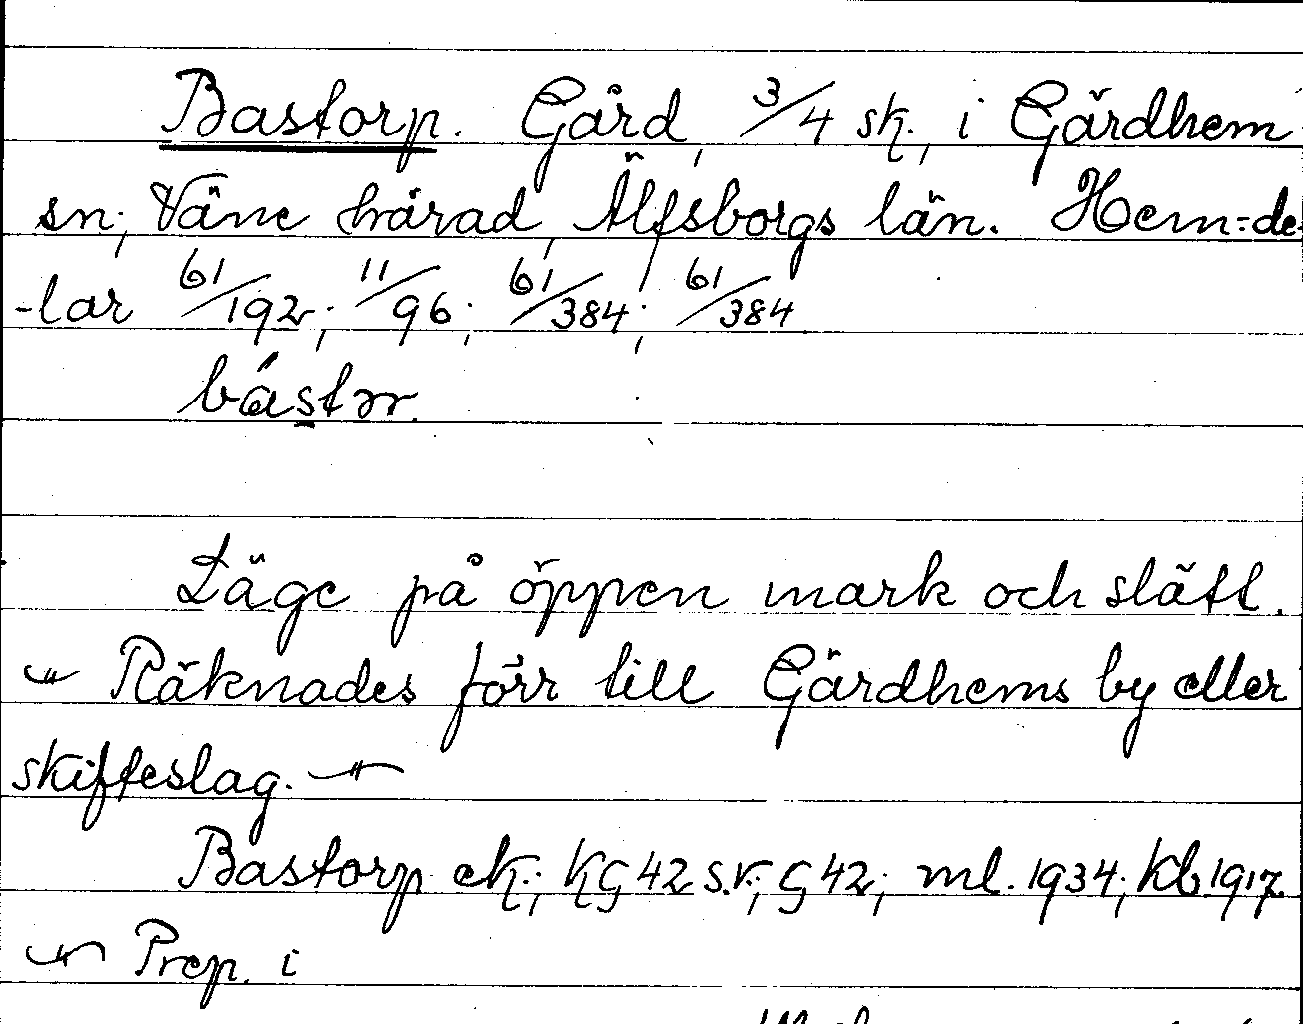 Bastorp. Gård, 3/4 sk., i Gärdhem
sn; Väne härad, Älfsborgs län. Hem=de-
-lar 61/192; 11/96; 61/384; 61/384
bástrr.
Läge på öppen mark och slätt.
Räknades förr till Gärdhems by eller
skifteslag.
Bastorp ek.; KG 42 s.v.; G 42; ml. 1934; Kb. 1917.
Prep. i